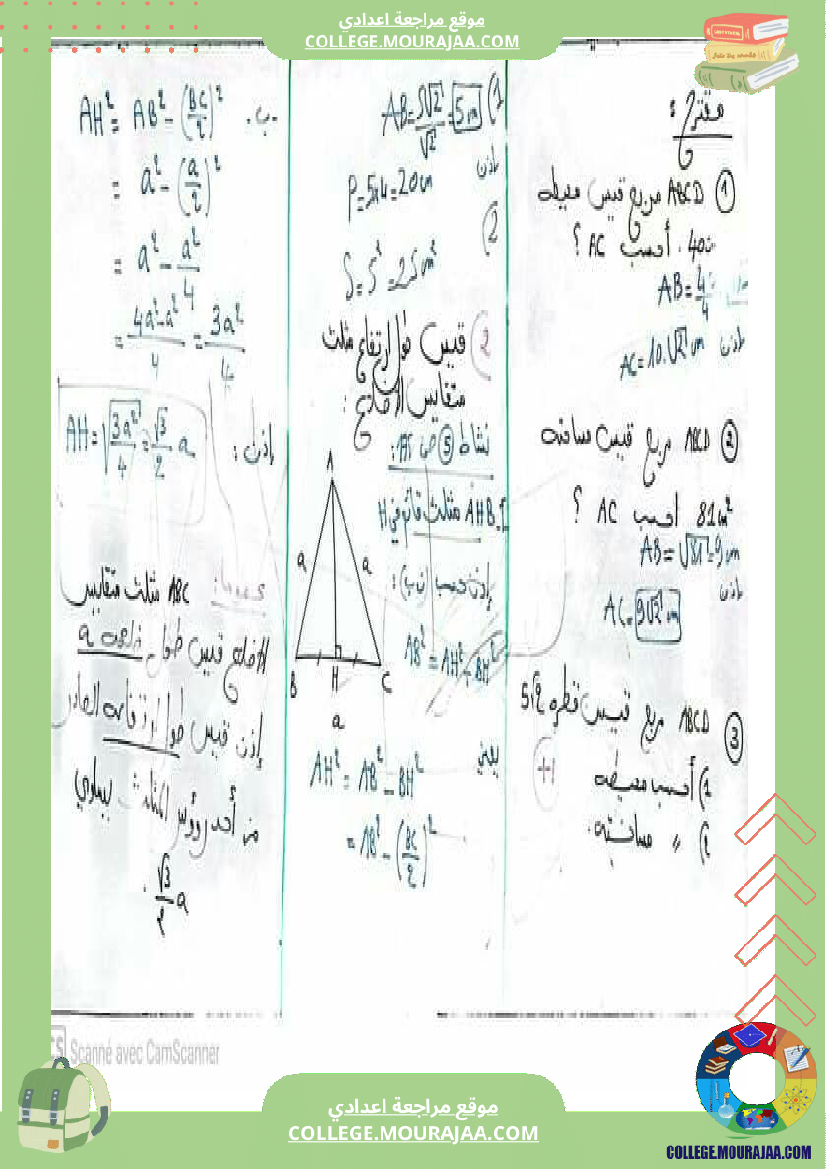 موقع مراجعة اعدادي
COLLEGE.MOURAJAA.COM
مقترح :
① ABCD مربع قيس محيطه
40cm. أحسب AC ؟
إذن AC=10.√2 cm
② ABCD مربع قيس مساحته
81cm² أحسب AC ؟
AB=√81=9cm
إذن
AC=9√2 cm
③ ABCD مربع قيس قطره 5√2
1) أحسب محيطه
2) " مساحته.
1) AB=5√2/√2=5cm
إذن
P=5x4=20cm
2)
S=5²=25cm²
2) قيس طول إرتفاع مثلث
متقايس الأضلاع :
نشاط ⑤ ص :
AHB مثلث قائم في H
A
a a
B H C
a
إذن حسب (ن ب) :
AB²=AH²+BH²
يعني
AH²=AB²-BH²
=AB²-(BC/2)²
ب. AH²=AB²-(BC/2)²
=a²-(a/2)²
=a²-a²/4
=4a²-a²/4=3a²/4
إذن : AH=√3a²/4=√3/2 a
عموما : ABC مثلث متقايس
الأضلاع قيس طول ضلعه a
إذن قيس طول إرتفاعه الصادر
من أحد رؤوس المثلث يساوي
√3/2 a.
CS Scanné avec CamScanner
موقع مراجعة اعدادي
COLLEGE.MOURAJAA.COM
COLLEGE.MOURAJAA.COM